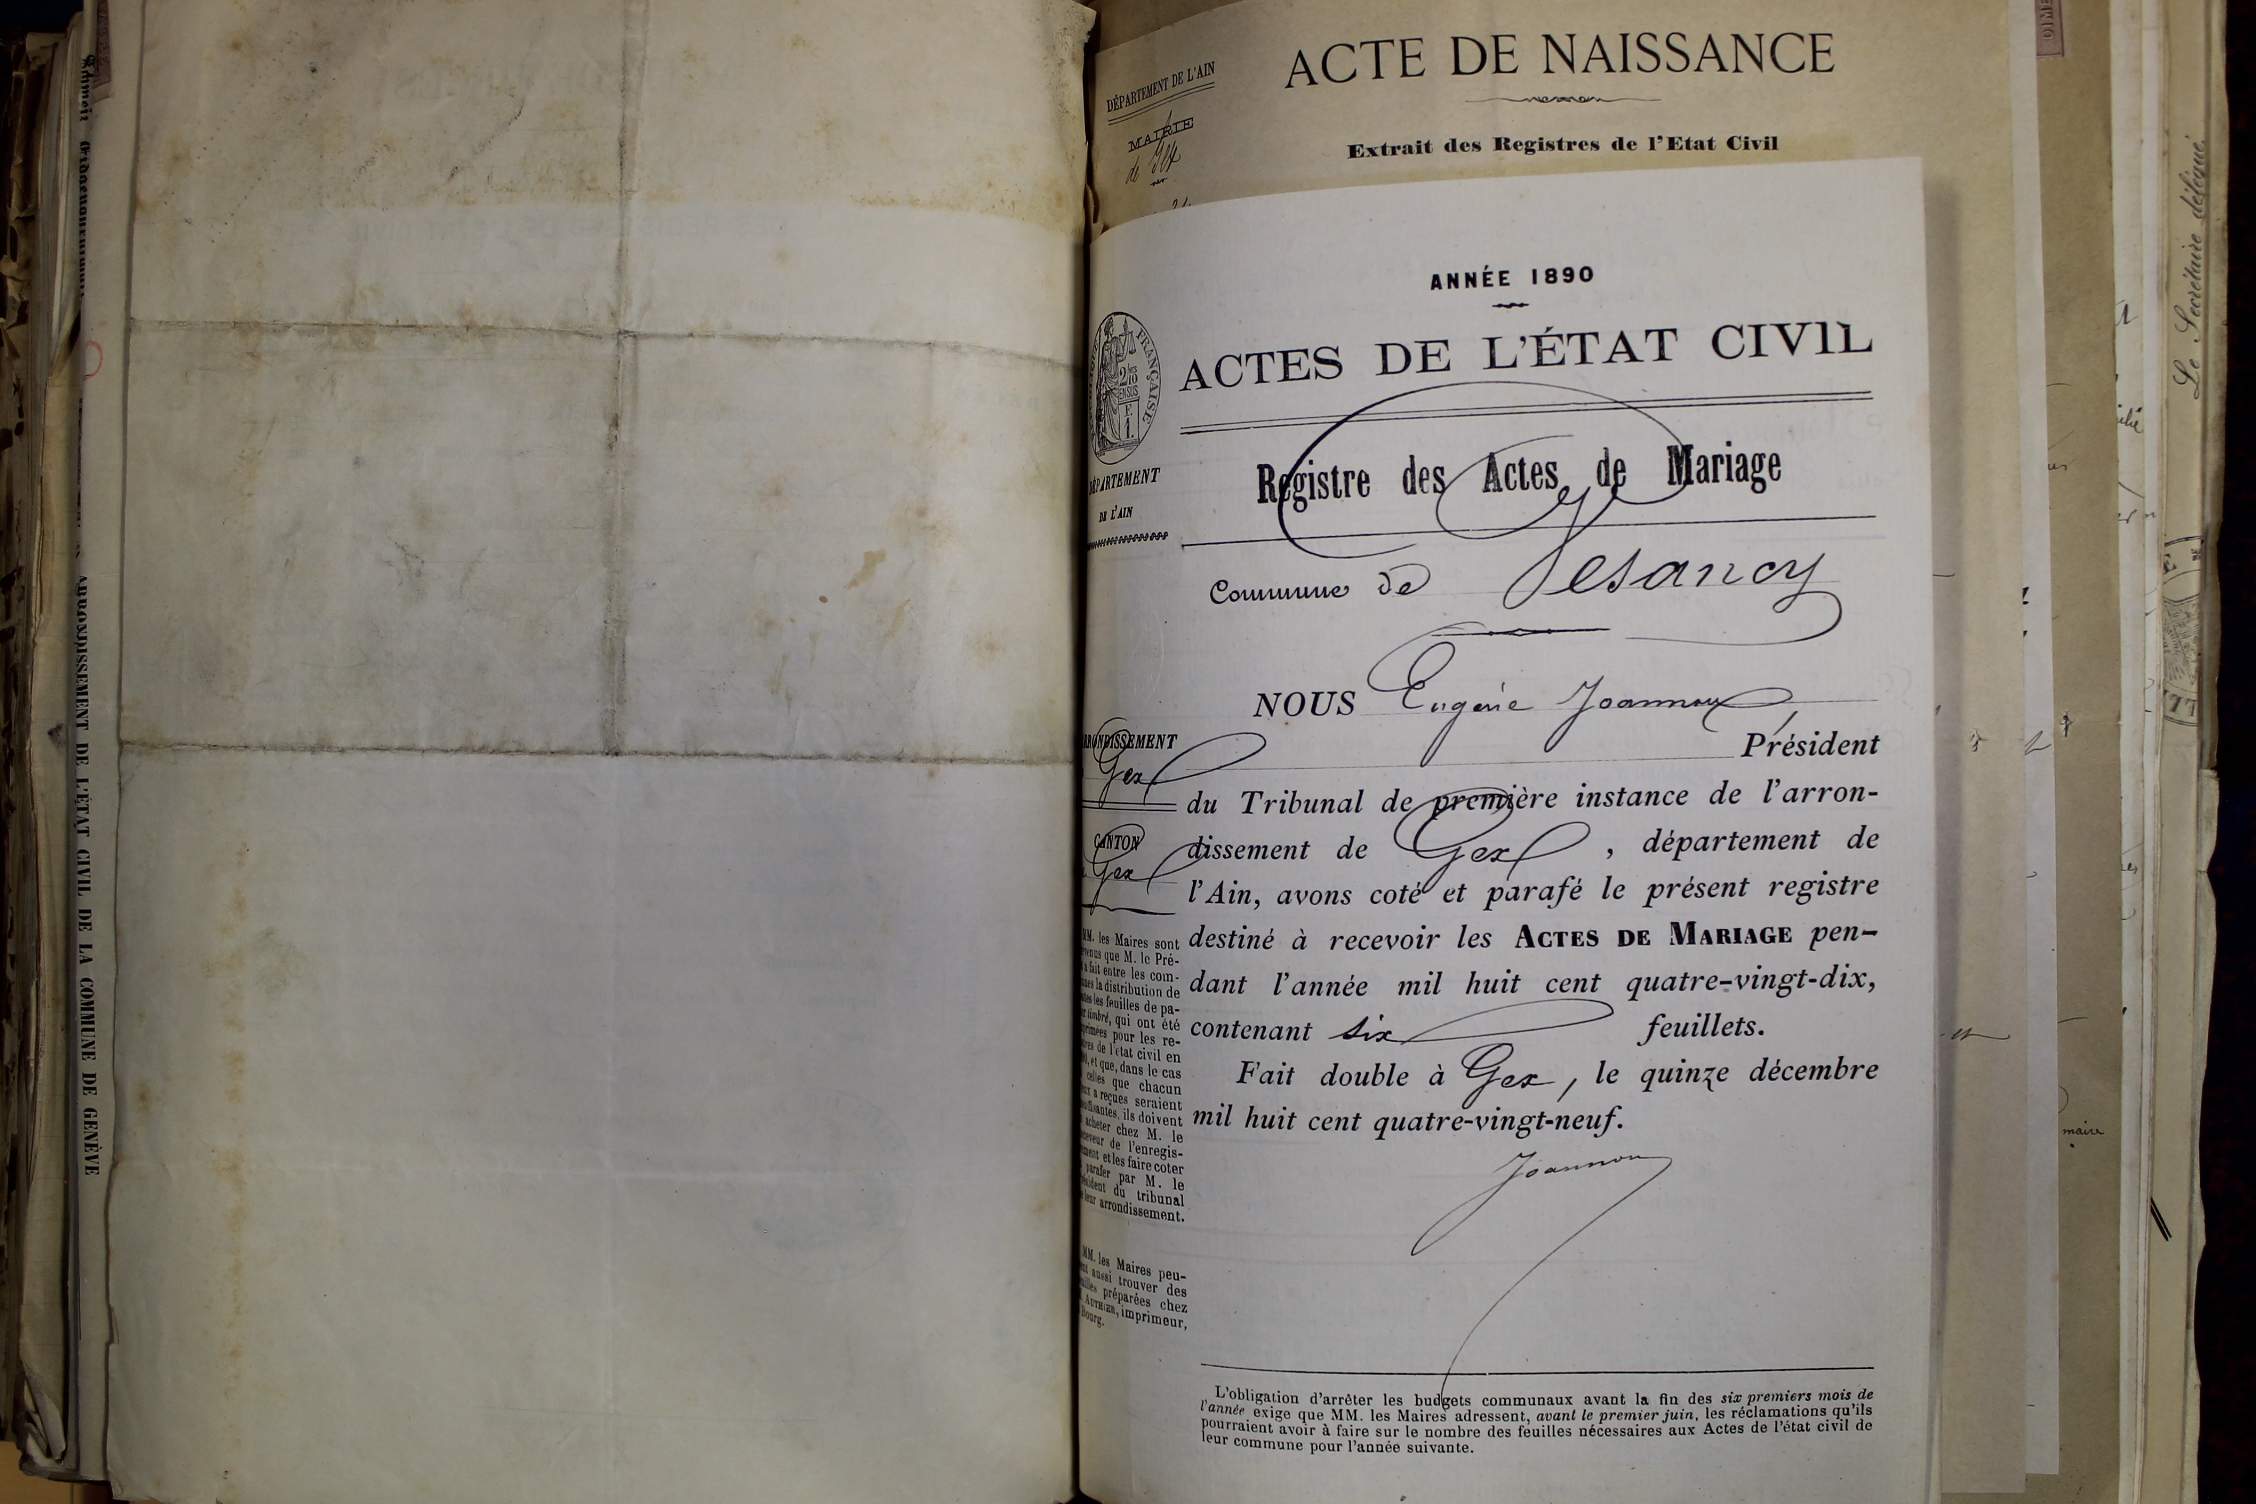 ARRONDISSEMENT DE L'ÉTAT CIVIL DE LA COMMUNE DE GENÈVE
DÉPARTEMENT DE L'AIN
MAIRIE
de Gex
ACTE DE NAISSANCE
Extrait des Registres de l'Etat Civil
ANNÉE 1890
ACTES DE L'ÉTAT CIVIL
FRANÇAISE
DÉPARTEMENT
DE L'AIN
Registre des Actes de Mariage
Commune de Vesancy
NOUS Eugène Joannon
Président
du Tribunal de première instance de l'arron-
dissement de Gex, département de
l'Ain, avons coté et parafé le présent registre
destiné à recevoir les ACTES DE MARIAGE pen-
dant l'année mil huit cent quatre-vingt-dix,
contenant six feuillets.
Fait double à Gex, le quinze décembre
mil huit cent quatre-vingt-neuf.
Joannon
ARRONDISSEMENT
Gex
CANTON
Gex
MM. les Maires sont
que M. le Pré-
a fait entre les com-
la distribution de
les feuilles de pa-
timbré, qui ont été
pour les re-
de l'état civil en
et que, dans le cas
celles que chacun
a reçues seraient
ils doivent
acheter chez M. le
de l'enregis-
et les faire coter
parafer par M. le
du tribunal
leur arrondissement.
MM. les Maires peu-
aussi trouver des
préparées chez
AUTHIER, imprimeur,
Bourg.
L'obligation d'arrêter les budgets communaux avant la fin des six premiers mois de
l'année exige que MM. les Maires adressent, avant le premier juin, les réclamations qu'ils
pourraient avoir à faire sur le nombre des feuilles nécessaires aux Actes de l'état civil de
leur commune pour l'année suivante.
Le Secrétaire délégué.
maire